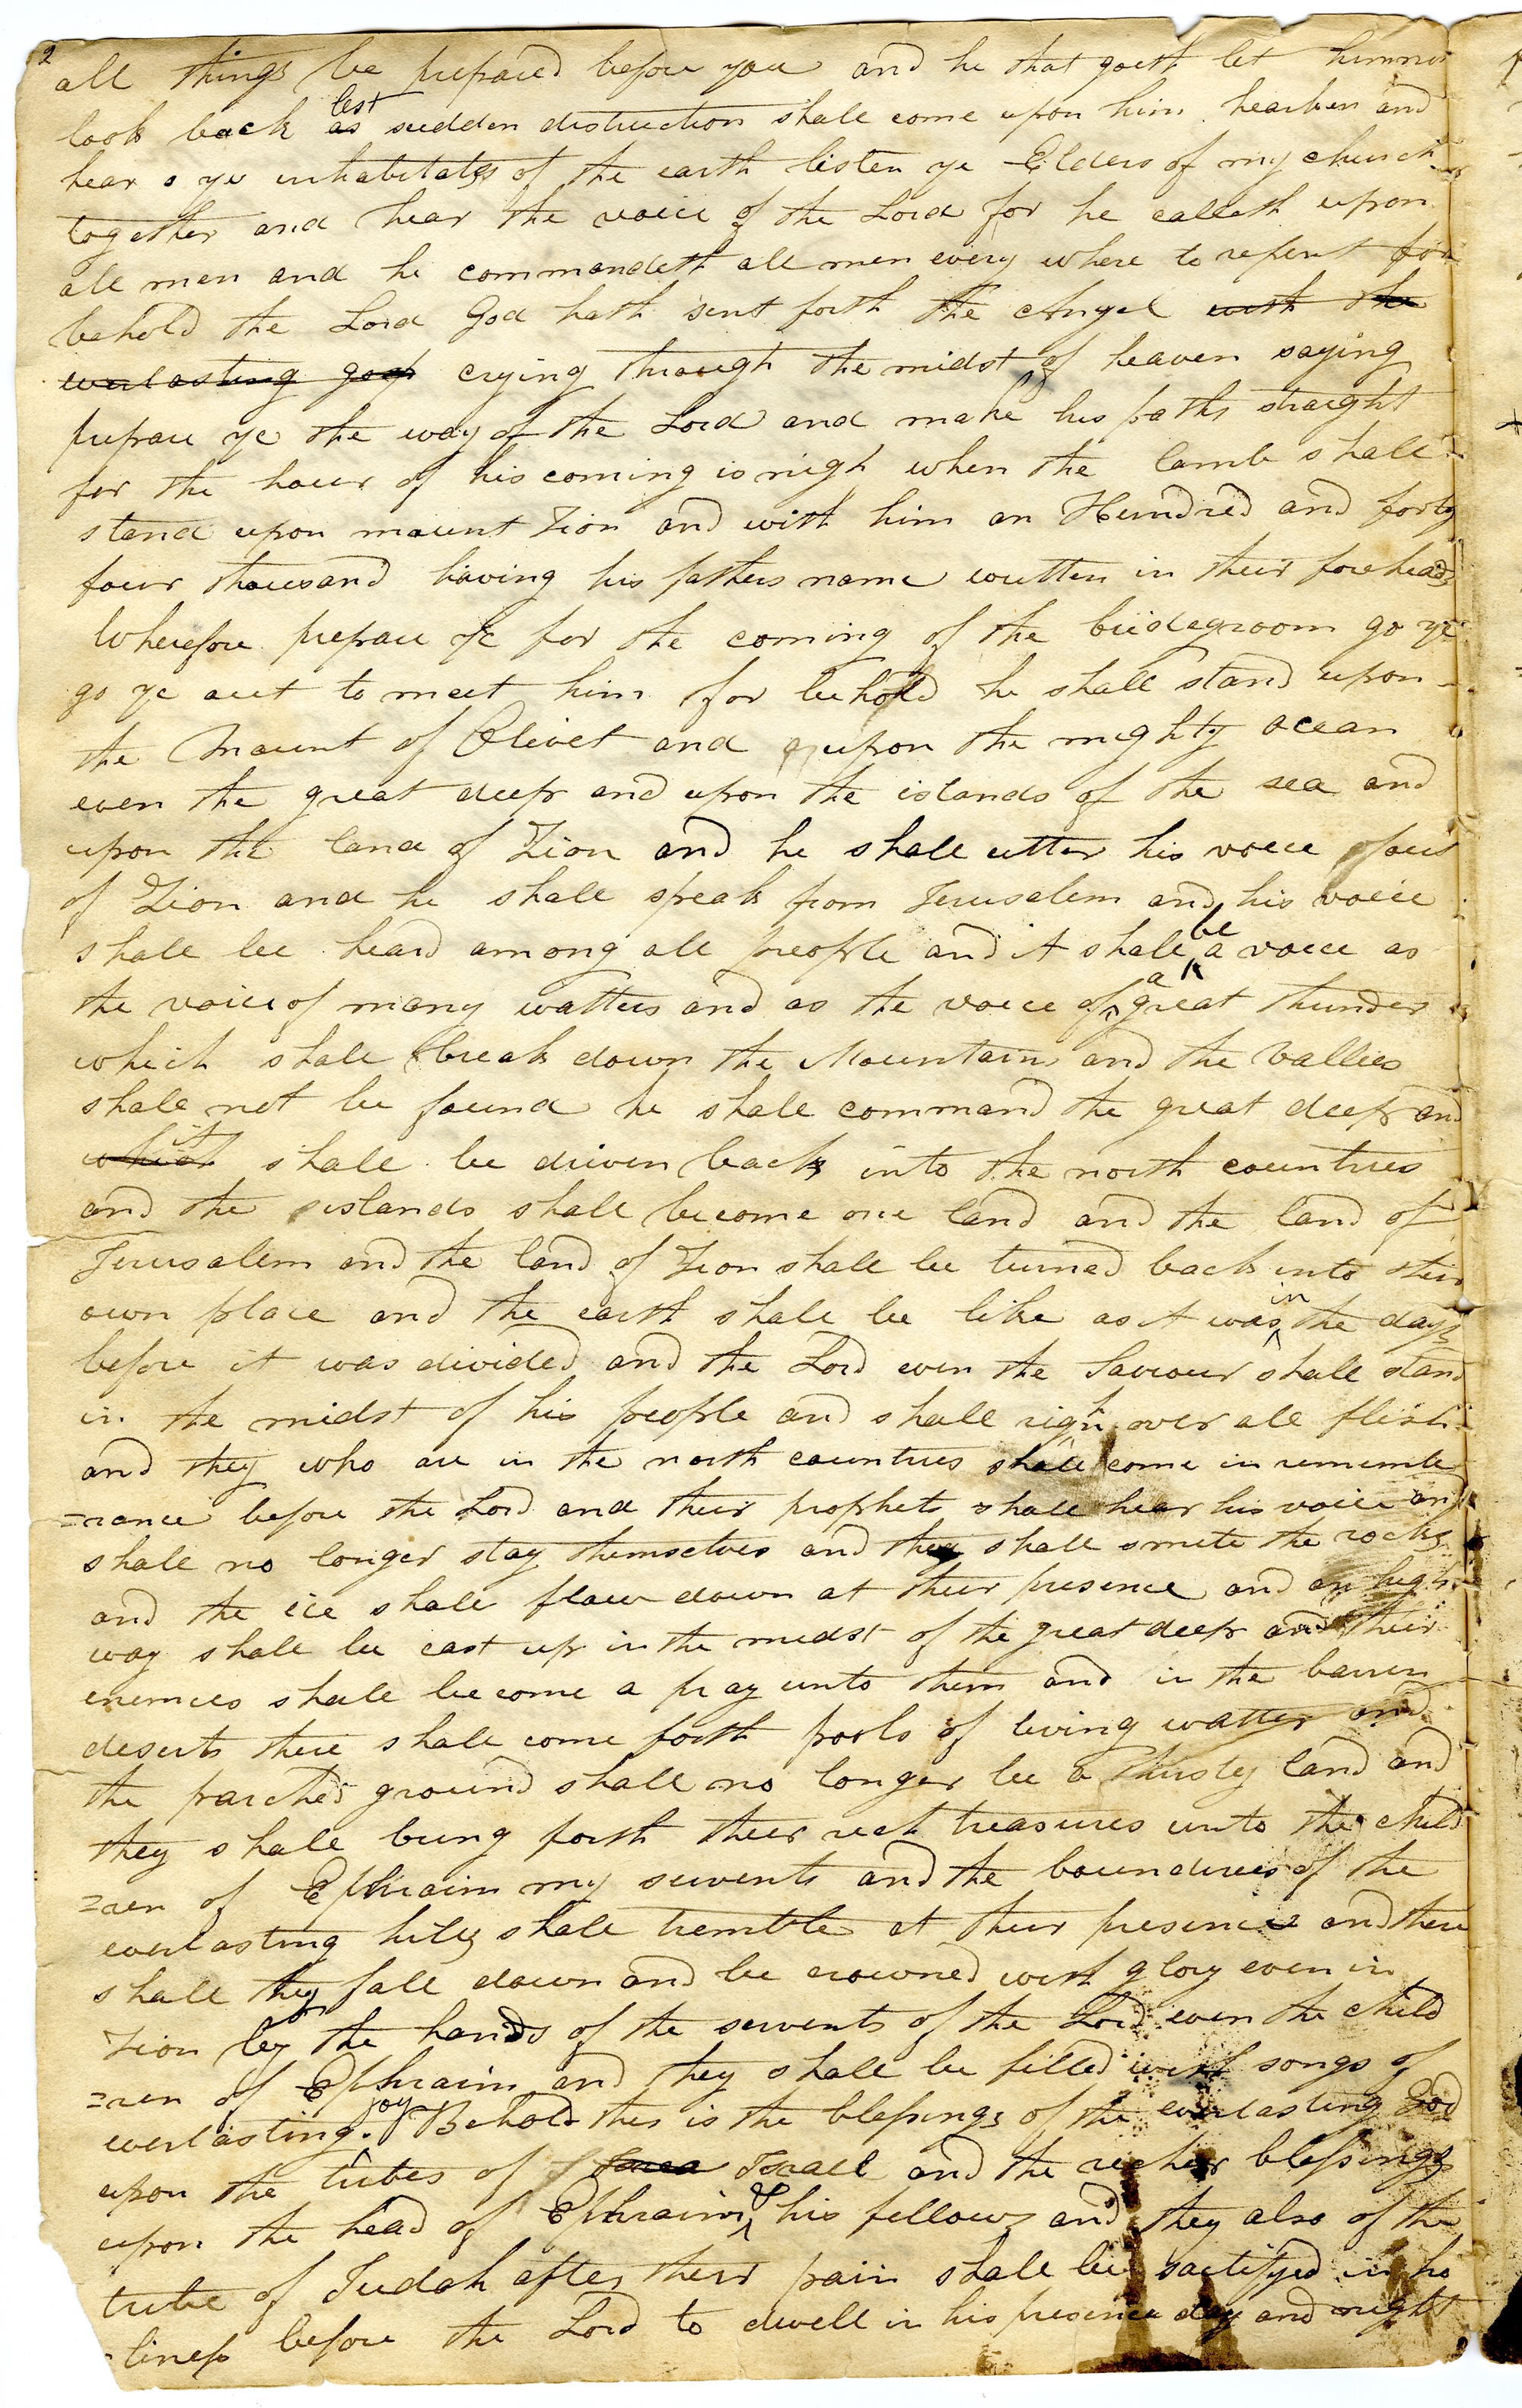 2
all things be prepared before you and he that goeth let himnot
look back lest as sudden distruction shall come upon him hearken and
hear o ye inhabitates of the earth listen ye Elders of my church
together and hear the voice of the Lord for he calleth upon
all men and he commandeth all men every where to repent for
behold the Lord God hath sent forth the Angel with the
everlasting gosp crying through the midst of heaven saying
prepare ye the way of the Lord and make his paths straight
for the hour of his coming is nigh when the lamb shall
stand upon mount Zion and with him an Hundred and forty
four thousand having his fathers name written in their foreheads
Wherefore prepare ye for the coming of the bridegroom go ye
go ye out to meet him for behold he shall stand upon
the Mount of Olivet and upon the mighty ocean
even the great deep and upon the islands of the sea and
upon the land of Zion and he shall utter his voice out
of Zion and he shall speak from Jerusalem and his voice
shall be heard among all people and it shall be a voice as
the voice of many watters and as the voice of a great thunder
which shall break down the Mountains and the Vallies
shall not be found he shall command the great deep and
which it shall be driven back into the north countries
and the islands shall become one land and the land of
Jerusalem and the land of Zion shall be turned back into their
own place and the earth shall be like as it was in the days
before it was divided and the Lord even the Saviour shall stand
in the midst of his people and shall righn over all flesh
and they who are in the north countries shall come in rememb
=rance before the Lord and their prophets shall hear his voice and
shall no longer stay themselves and they shall smite the rocks
and the ice shall flow down at their presence and an high
way shall be cast up in the midst of the great deep and their
enemies shall become a pray unto them and in the barren
deserts there shall come forth pools of living watter and
the parched ground shall no longer be a thirsty land and
they shall bring forth their rich treasures unto the child
=ren of Ephraim my servents and the boundries of the
everlasting hills shall tremble at their presence and there
shall they fall down and be crowned with glory even in
Zion by the hands of the servents of the Lord even the child
=ren of Ephraim and they shall be filled with songs of
everlasting joy Behold this is the blessings of the everlasting God
upon the tribes of Israel and the richer blessings
upon the head of Ephraim & his fellows and they also of the
tribe of Judah after their pain shall be sactifyed in ho
-liness before the Lord to dwell in his presence day and night